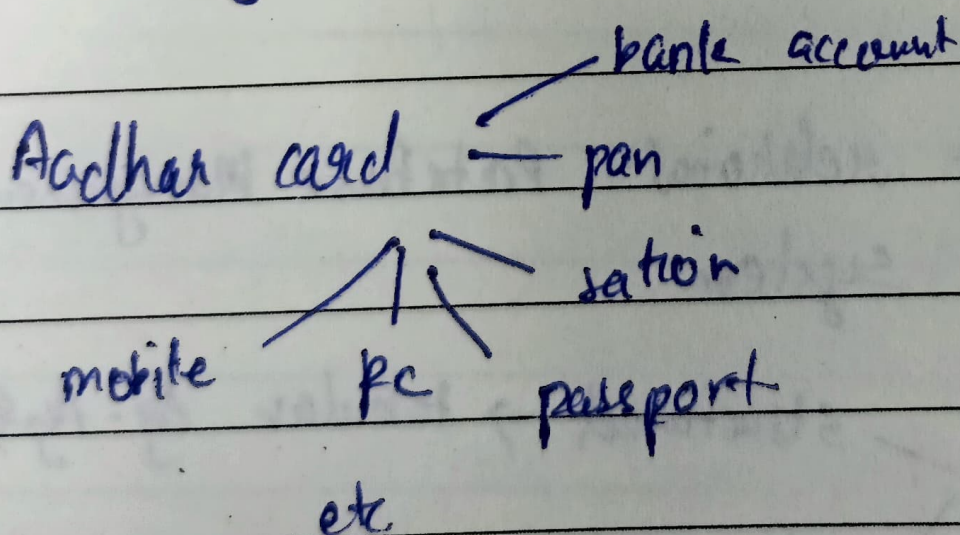 bank account
Aadhar card pan
ration
mobile PC passport
etc